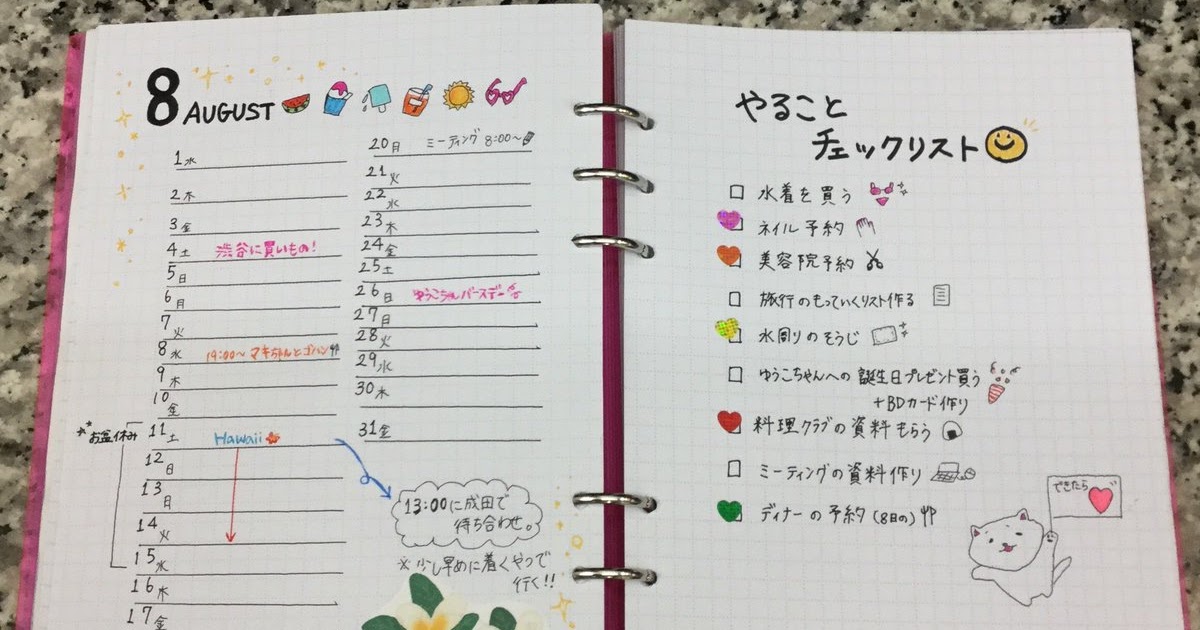 8 AUGUST
1水
2木
3金
4土 渋谷に買いもの!
5日
6月
7火
8水 19:00〜マキちゃんとゴハン
9木
10金
お盆休み
11土 Hawaii
12日
13日
14火
15水
16木
17金
20日 ミーティング 8:00〜
21火
22水
23木
24金
25土
26日 ゆうこちゃんバースデー
27日
28火
29水
30木
31金
13:00に成田で
待ち合わせ。
※少し早めに着くやつで
行く!!
やること
チェックリスト
水着を買う
ネイル予約
美容院予約
旅行のもっていくリスト作る
水周りのそうじ
ゆうこちゃんへの誕生日プレゼント買う
+BDカード作り
料理クラブの資料もらう
ミーティングの資料作り
ディナーの予約(8日の)
できたら